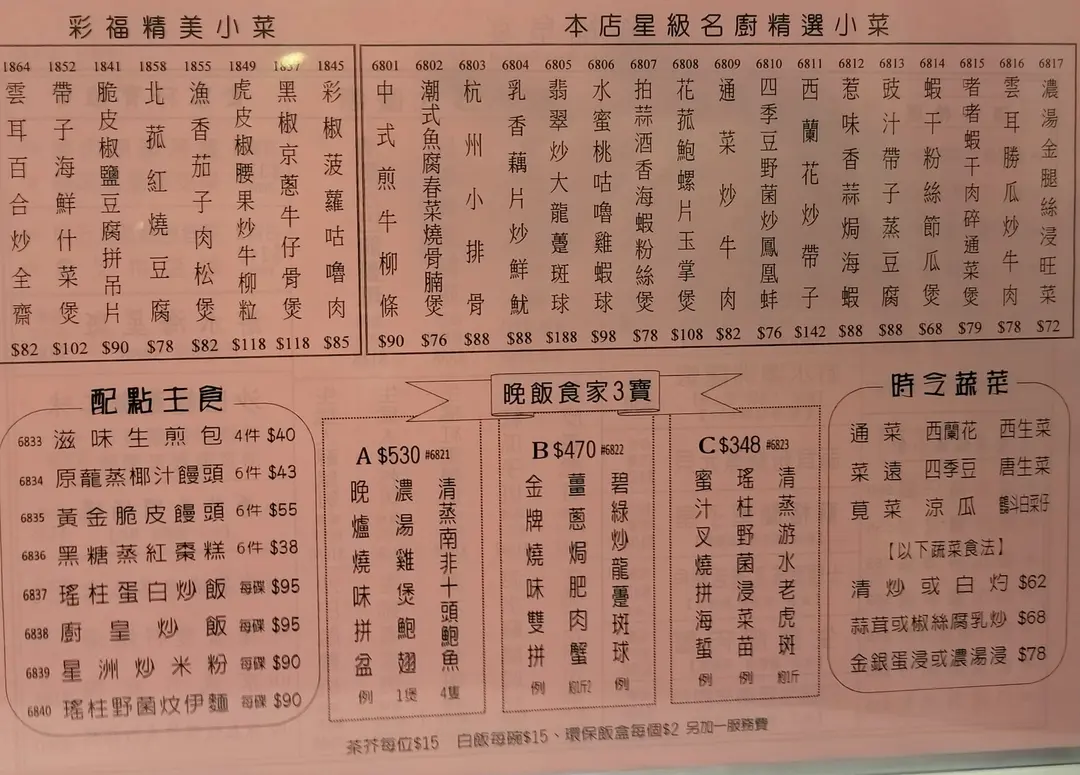 彩福精美小菜
1864 雲耳百合炒全齋 $82
1852 帶子海鮮什菜煲 $102
1841 脆皮椒鹽豆腐拼吊片 $90
1858 北菰紅燒豆腐 $78
1855 漁香茄子肉松煲 $82
1849 虎皮椒腰果炒牛柳粒 $118
1837 黑椒京蔥牛仔骨煲 $118
1845 彩椒菠蘿咕嚕肉 $85
本店星級名廚精選小菜
6801 中式煎牛柳條 $90
6802 潮式魚腐春菜燒骨腩煲 $76
6803 杭州小排骨 $88
6804 乳香藕片炒鮮魷 $88
6805 翡翠炒大龍躉斑球 $188
6806 水蜜桃咕嚕雞蝦球 $98
6807 拍蒜酒香海蝦粉絲煲 $78
6808 花菰鮑螺片玉掌煲 $108
6809 通菜炒牛肉 $82
6810 四季豆野菌炒鳳凰蚌 $76
6811 西蘭花炒帶子 $142
6812 惹味香蒜焗海蝦 $88
6813 豉汁帶子蒸豆腐 $88
6814 蝦干粉絲節瓜煲 $68
6815 啫啫蝦干肉碎通菜煲 $79
6816 雲耳勝瓜炒牛肉 $78
6817 濃湯金腿絲浸旺菜 $72
配點主食
6833 滋味生煎包 4件 $40
6834 原籠蒸椰汁饅頭 6件 $43
6835 黃金脆皮饅頭 6件 $55
6836 黑糖蒸紅棗糕 6件 $38
6837 瑤柱蛋白炒飯 每碟 $95
6838 廚皇炒飯 每碟 $95
6839 星洲炒米粉 每碟 $90
6840 瑤柱野菌炆伊麵 每碟 $90
晚飯食家3寶
A $530 #6821
晚爐燒味拼盆 例
濃湯雞煲鮑翅 1煲
清蒸南非十頭鮑魚 4隻
B $470 #6822
金牌燒味雙拼 例
薑蔥焗肥肉蟹 約1斤2
碧綠炒龍躉斑球 例
C $348 #6823
蜜汁叉燒拼海蜇 例
瑤柱野菌浸菜苗 例
清蒸游水老虎斑 約1斤
時令蔬菜
通菜 西蘭花 西生菜
菜遠 四季豆 唐生菜
莧菜 涼瓜 鶴斗白菜仔
【以下蔬菜食法】
清炒或白灼 $62
蒜茸或椒絲腐乳炒 $68
金銀蛋浸或濃湯浸 $78
茶芥每位$15 白飯每碗$15、環保飯盒每個$2 另加一服務費